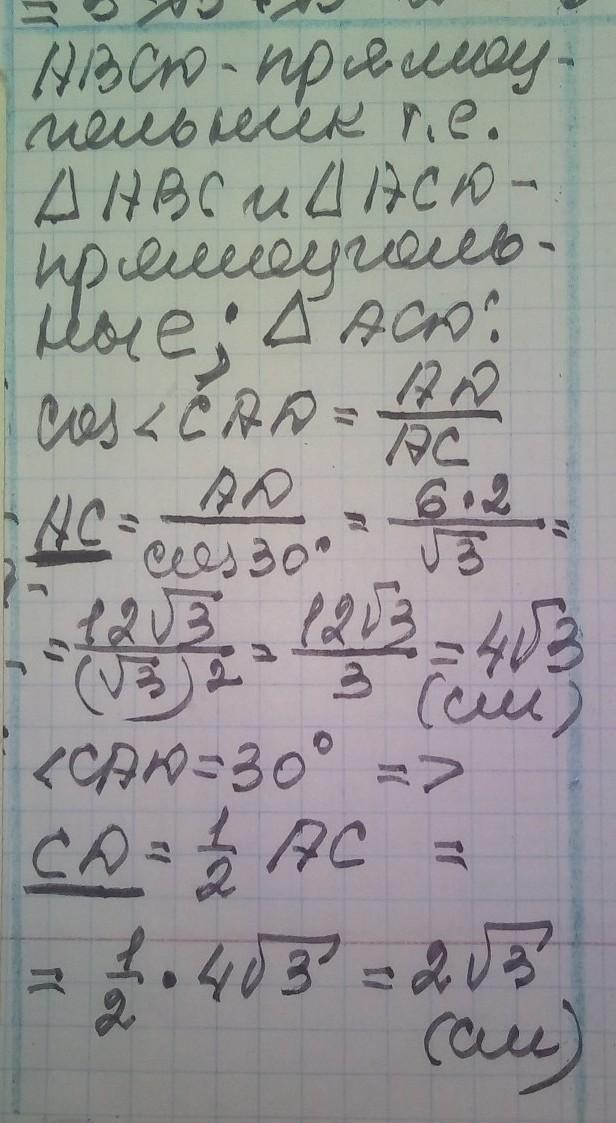 ABCD - прямоу-
гольник т.е.
△ ABC и △ ACD -
прямоуголь-
ные; △ ACD:
cos < CAD = AD / AC
AC = AD / cos 30° = 6 · 2 / √3 =
= 12√3 / (√3)2 = 12√3 / 3 = 4√3
(см)
< CAD = 30° =>
CD = 1/2 AC =
= 1/2 · 4√3 = 2√3
(см)